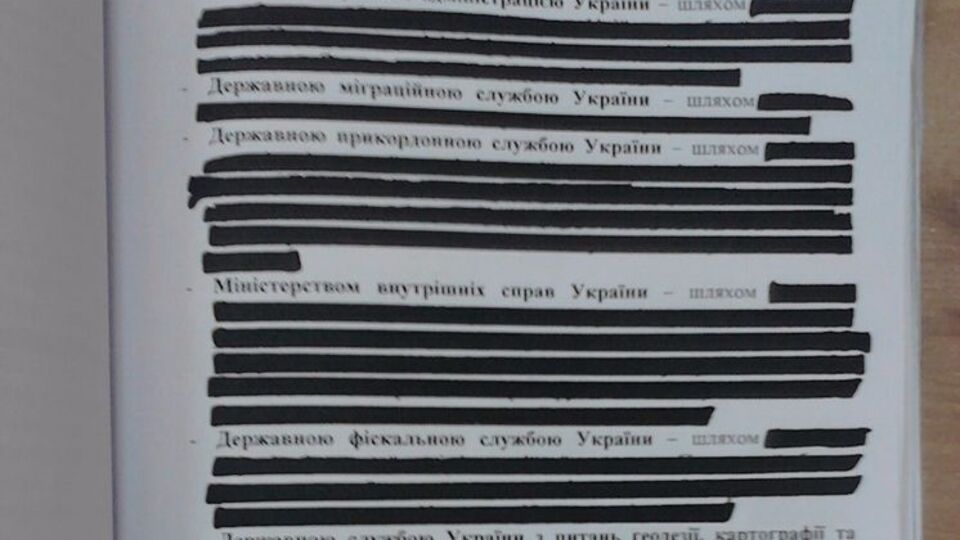 України – шляхом
- Державною міграційною службою України – шляхом
- Державною прикордонною службою України – шляхом
- Міністерством внутрішніх справ України – шляхом
- Державною фіскальною службою України – шляхом
Державною службою України з питань геодезії, картографії та